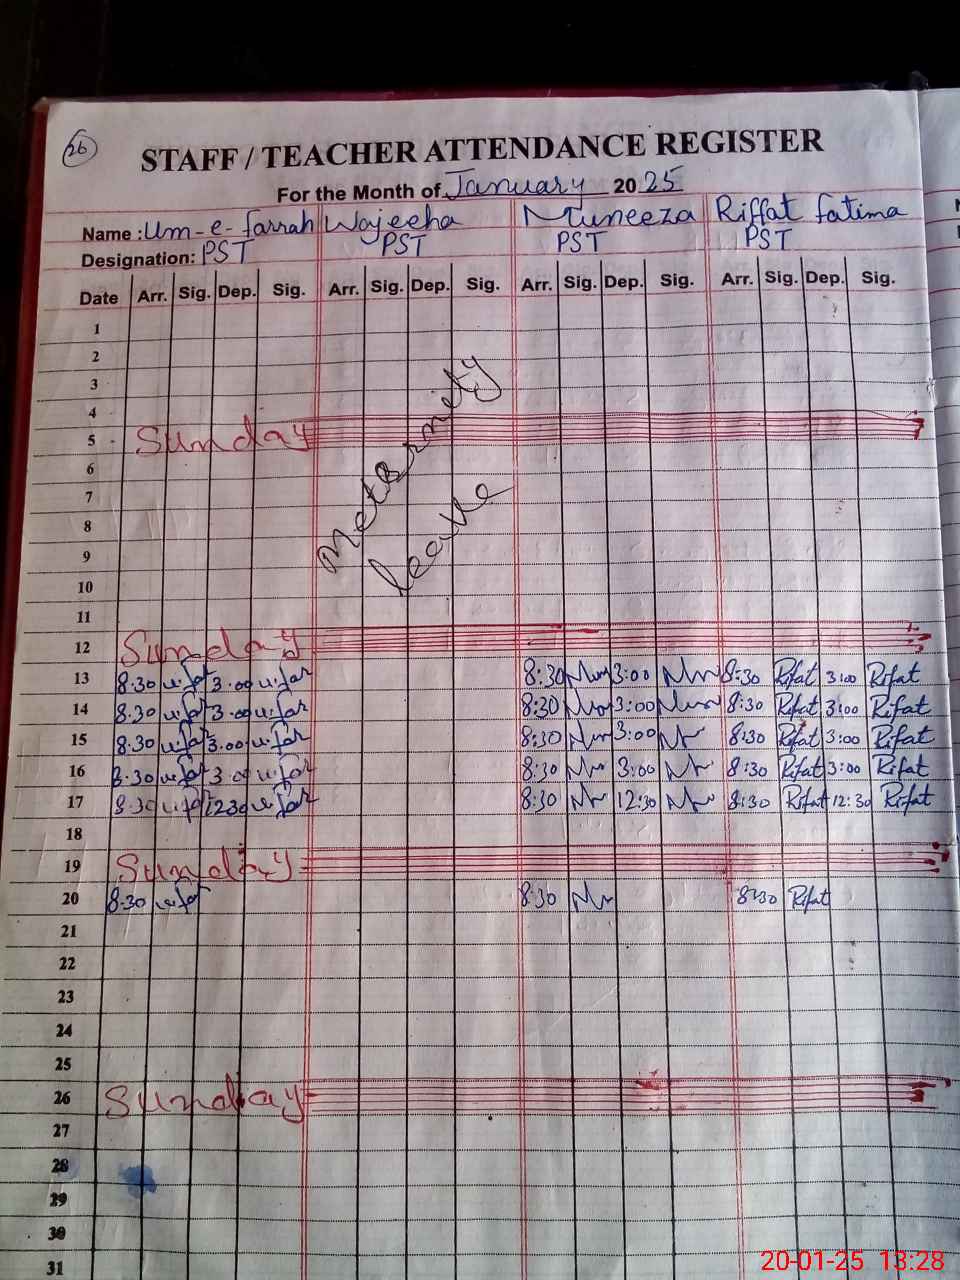 26
STAFF / TEACHER ATTENDANCE REGISTER
For the Month of January 2025
Name : Um-e-farrah Wajeeha Muneeza Riffat fatima
Designation: PST PST PST PST
Date Arr. Sig. Dep. Sig. Arr. Sig. Dep. Sig. Arr. Sig. Dep. Sig. Arr. Sig. Dep. Sig.
1
2
3
4
5 Sunday
6
7
8
9
10
Meternity
leave
11
12 Sunday
13 8.30 u.far 3.00 u.far 8:30 3:00 8:30 Rifat 3:00 Rifat
14 8.30 u.far 3.00 u.far 8:30 3:00 8:30 Rifat 3:00 Rifat
15 8.30 u.far 3.00 u.far 8:30 3:00 8:30 Rifat 3:00 Rifat
16 8.30 u.far 3.00 u.far 8:30 3:00 8:30 Rifat 3:00 Rifat
17 8.30 u.far 1230 u.far 8:30 12:30 8:30 Rifat 12:30 Rifat
18
19 Sunday
20 8.30 u.far 8:30 8:30 Rifat
21
22
23
24
25
26 Sunday
27
28
29
30
31
20-01-25 13:28